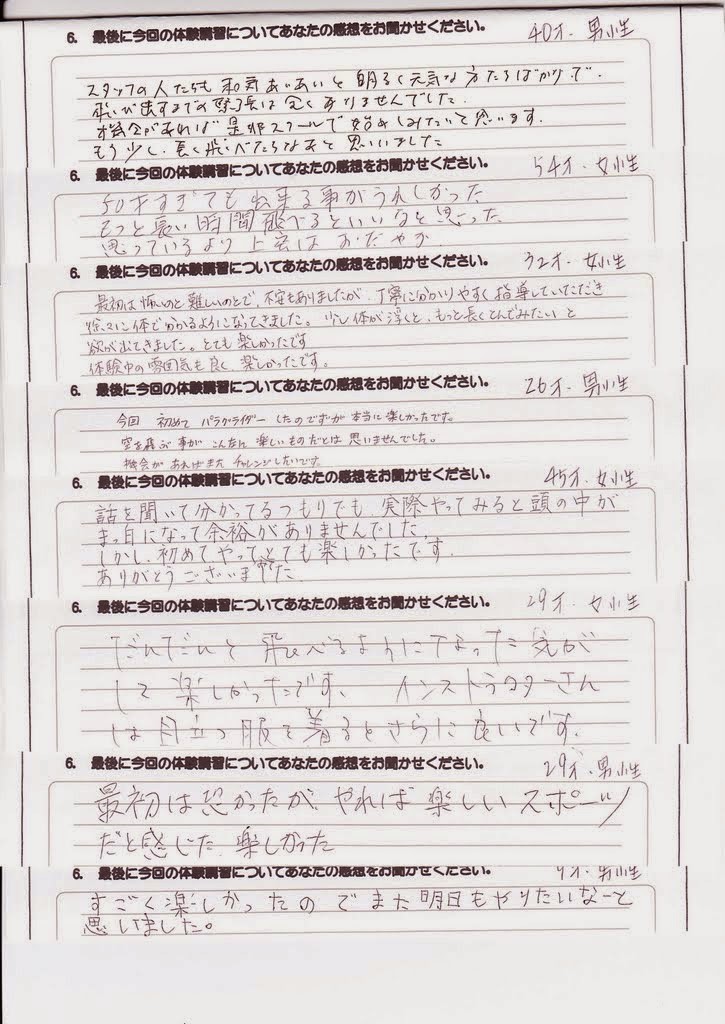 6. 最後に今回の体験講習についてあなたの感想をお聞かせください。 40才・男性
スタッフの人たちも和気あいあいと明るく元気な方たちばかりで、
飛び出すまでの緊張は全くありませんでした。
機会があれば是非スクールで始めてみたいと思います。
もう少し、長く飛べたらなあと思いました
6. 最後に今回の体験講習についてあなたの感想をお聞かせください。 54才・女性
50才すぎても出来る事がうれしかった
もっと長い時間飛べるといいなと思った
思っているより上空はおだやか
6. 最後に今回の体験講習についてあなたの感想をお聞かせください。 32才・女性
最初は怖いのと難しいのとで、不安もありましたが、丁寧に分かりやすく指導していただき
徐々に体で分かるようになってきました。少し体が浮くと、もっと長くとんでみたいと
欲が出てきました。とても楽しかったです
体験中の雰囲気も良く、楽しかったです。
6. 最後に今回の体験講習についてあなたの感想をお聞かせください。 26才・男性
今回 初めて パラグライダーしたのですが本当に楽しかったです。
空を飛ぶ事がこんなに楽しいものだとは思いませんでした。
機会があればまたチャレンジしたいです。
6. 最後に今回の体験講習についてあなたの感想をお聞かせください。 45才・女性
話を聞いて分かってるつもりでも、実際やってみると頭の中が
まっ白になって余裕がありませんでした。
しかし、初めてやってとても楽しかったです。
ありがとうございました
6. 最後に今回の体験講習についてあなたの感想をお聞かせください。 29才・女性
だんだんと飛べるようになった気が
して楽しかったです。 インストラクターさん
は目立つ服を着るとさらに良いです。
6. 最後に今回の体験講習についてあなたの感想をお聞かせください。 29才・男性
最初は恐かったが、やれば楽しいスポーツ
だと感じた。楽しかった
6. 最後に今回の体験講習についてあなたの感想をお聞かせください。 9才・男性
すごく楽しかったのでまた明日もやりたいなーと
思いました。